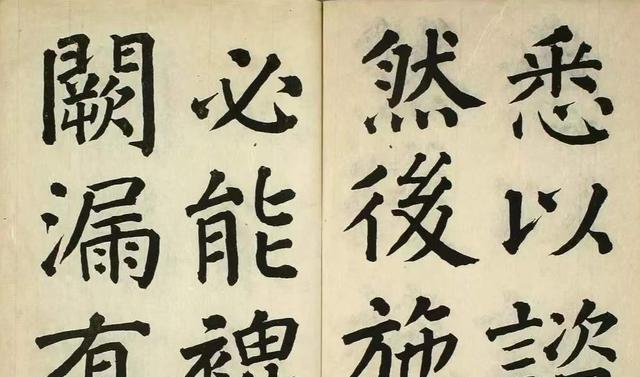 悉以諮
然後施
必能裨
闕漏有